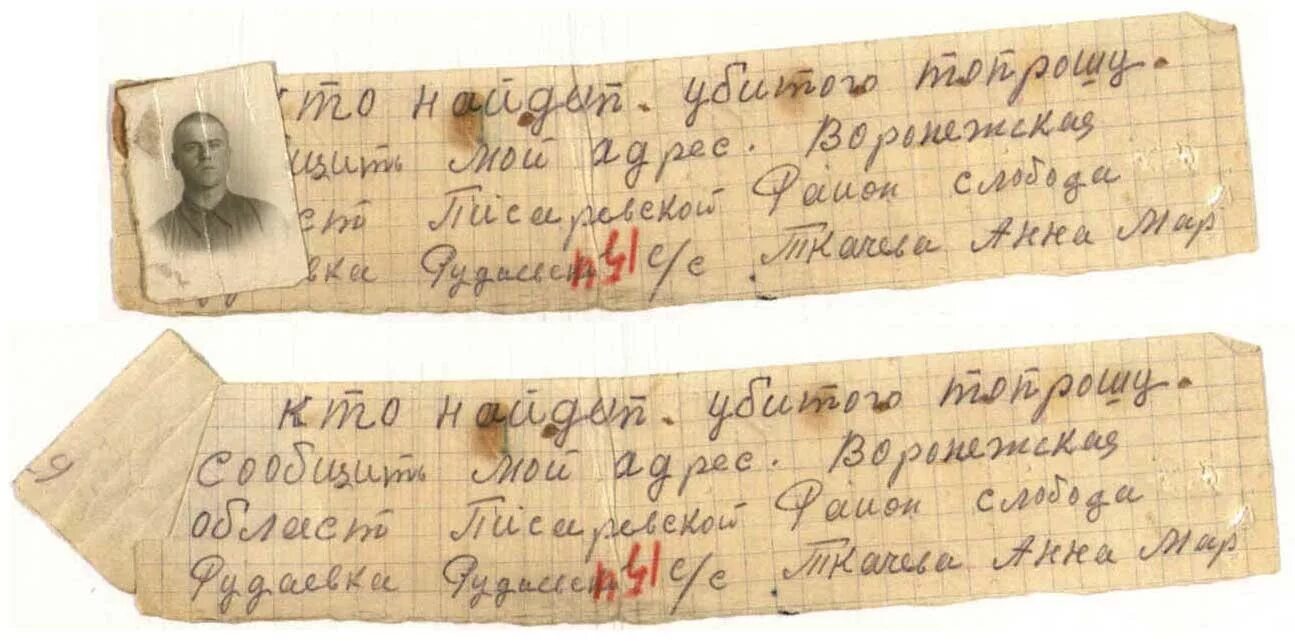 кто найдет. убитого топрошу.
щить мой адрес. Воронежская
ст Писаревской Район слобода
вка Рудаевск с/с Ткачева Анна Мар
кто найдет. убитого топрошу.
Сообщить мой адрес. Воронежская
област Писаревской Район слобода
Рудаевка Рудаевск с/с Ткачева Анна Мар